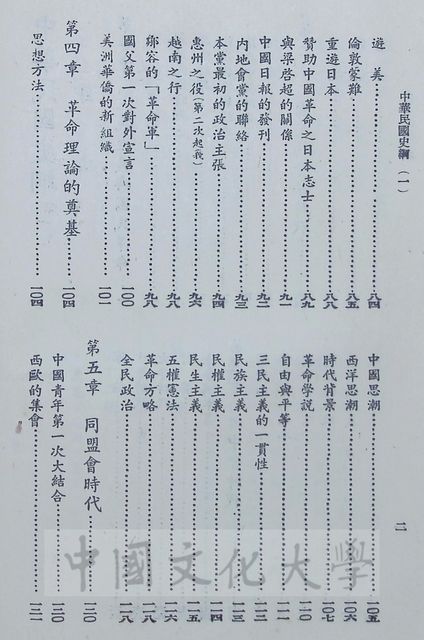 中華民國史綱（一）
二
遊美⋯⋯八四
倫敦蒙難⋯⋯八五
重遊日本⋯⋯八八
贊助中國革命之日本志士⋯⋯八九
與梁啓超的關係⋯⋯九一
中國日報的發刊⋯⋯九二
內地會黨的聯絡⋯⋯九三
本黨最初的政治主張⋯⋯九四
惠州之役（第二次起義）⋯⋯九六
越南之行⋯⋯九八
鄒容的「革命軍」⋯⋯九八
國父第一次對外宣言⋯⋯一〇〇
美洲華僑的新組織⋯⋯一〇一
第四章　革命理論的奠基⋯⋯一〇四
思想方法⋯⋯一〇四
中國思潮⋯⋯一〇五
西洋思潮⋯⋯一〇六
時代背景⋯⋯一〇七
革命學說⋯⋯一一〇
自由與平等⋯⋯一一一
三民主義的一貫性⋯⋯一一二
民族主義⋯⋯一一三
民權主義⋯⋯一一四
民生主義⋯⋯一一五
五權憲法⋯⋯一一六
革命方略⋯⋯一一八
全民政治⋯⋯一一八
第五章　同盟會時代⋯⋯一二〇
中國青年第一次大結合⋯⋯一二〇
西歐的集會⋯⋯一二一
中國文化大學